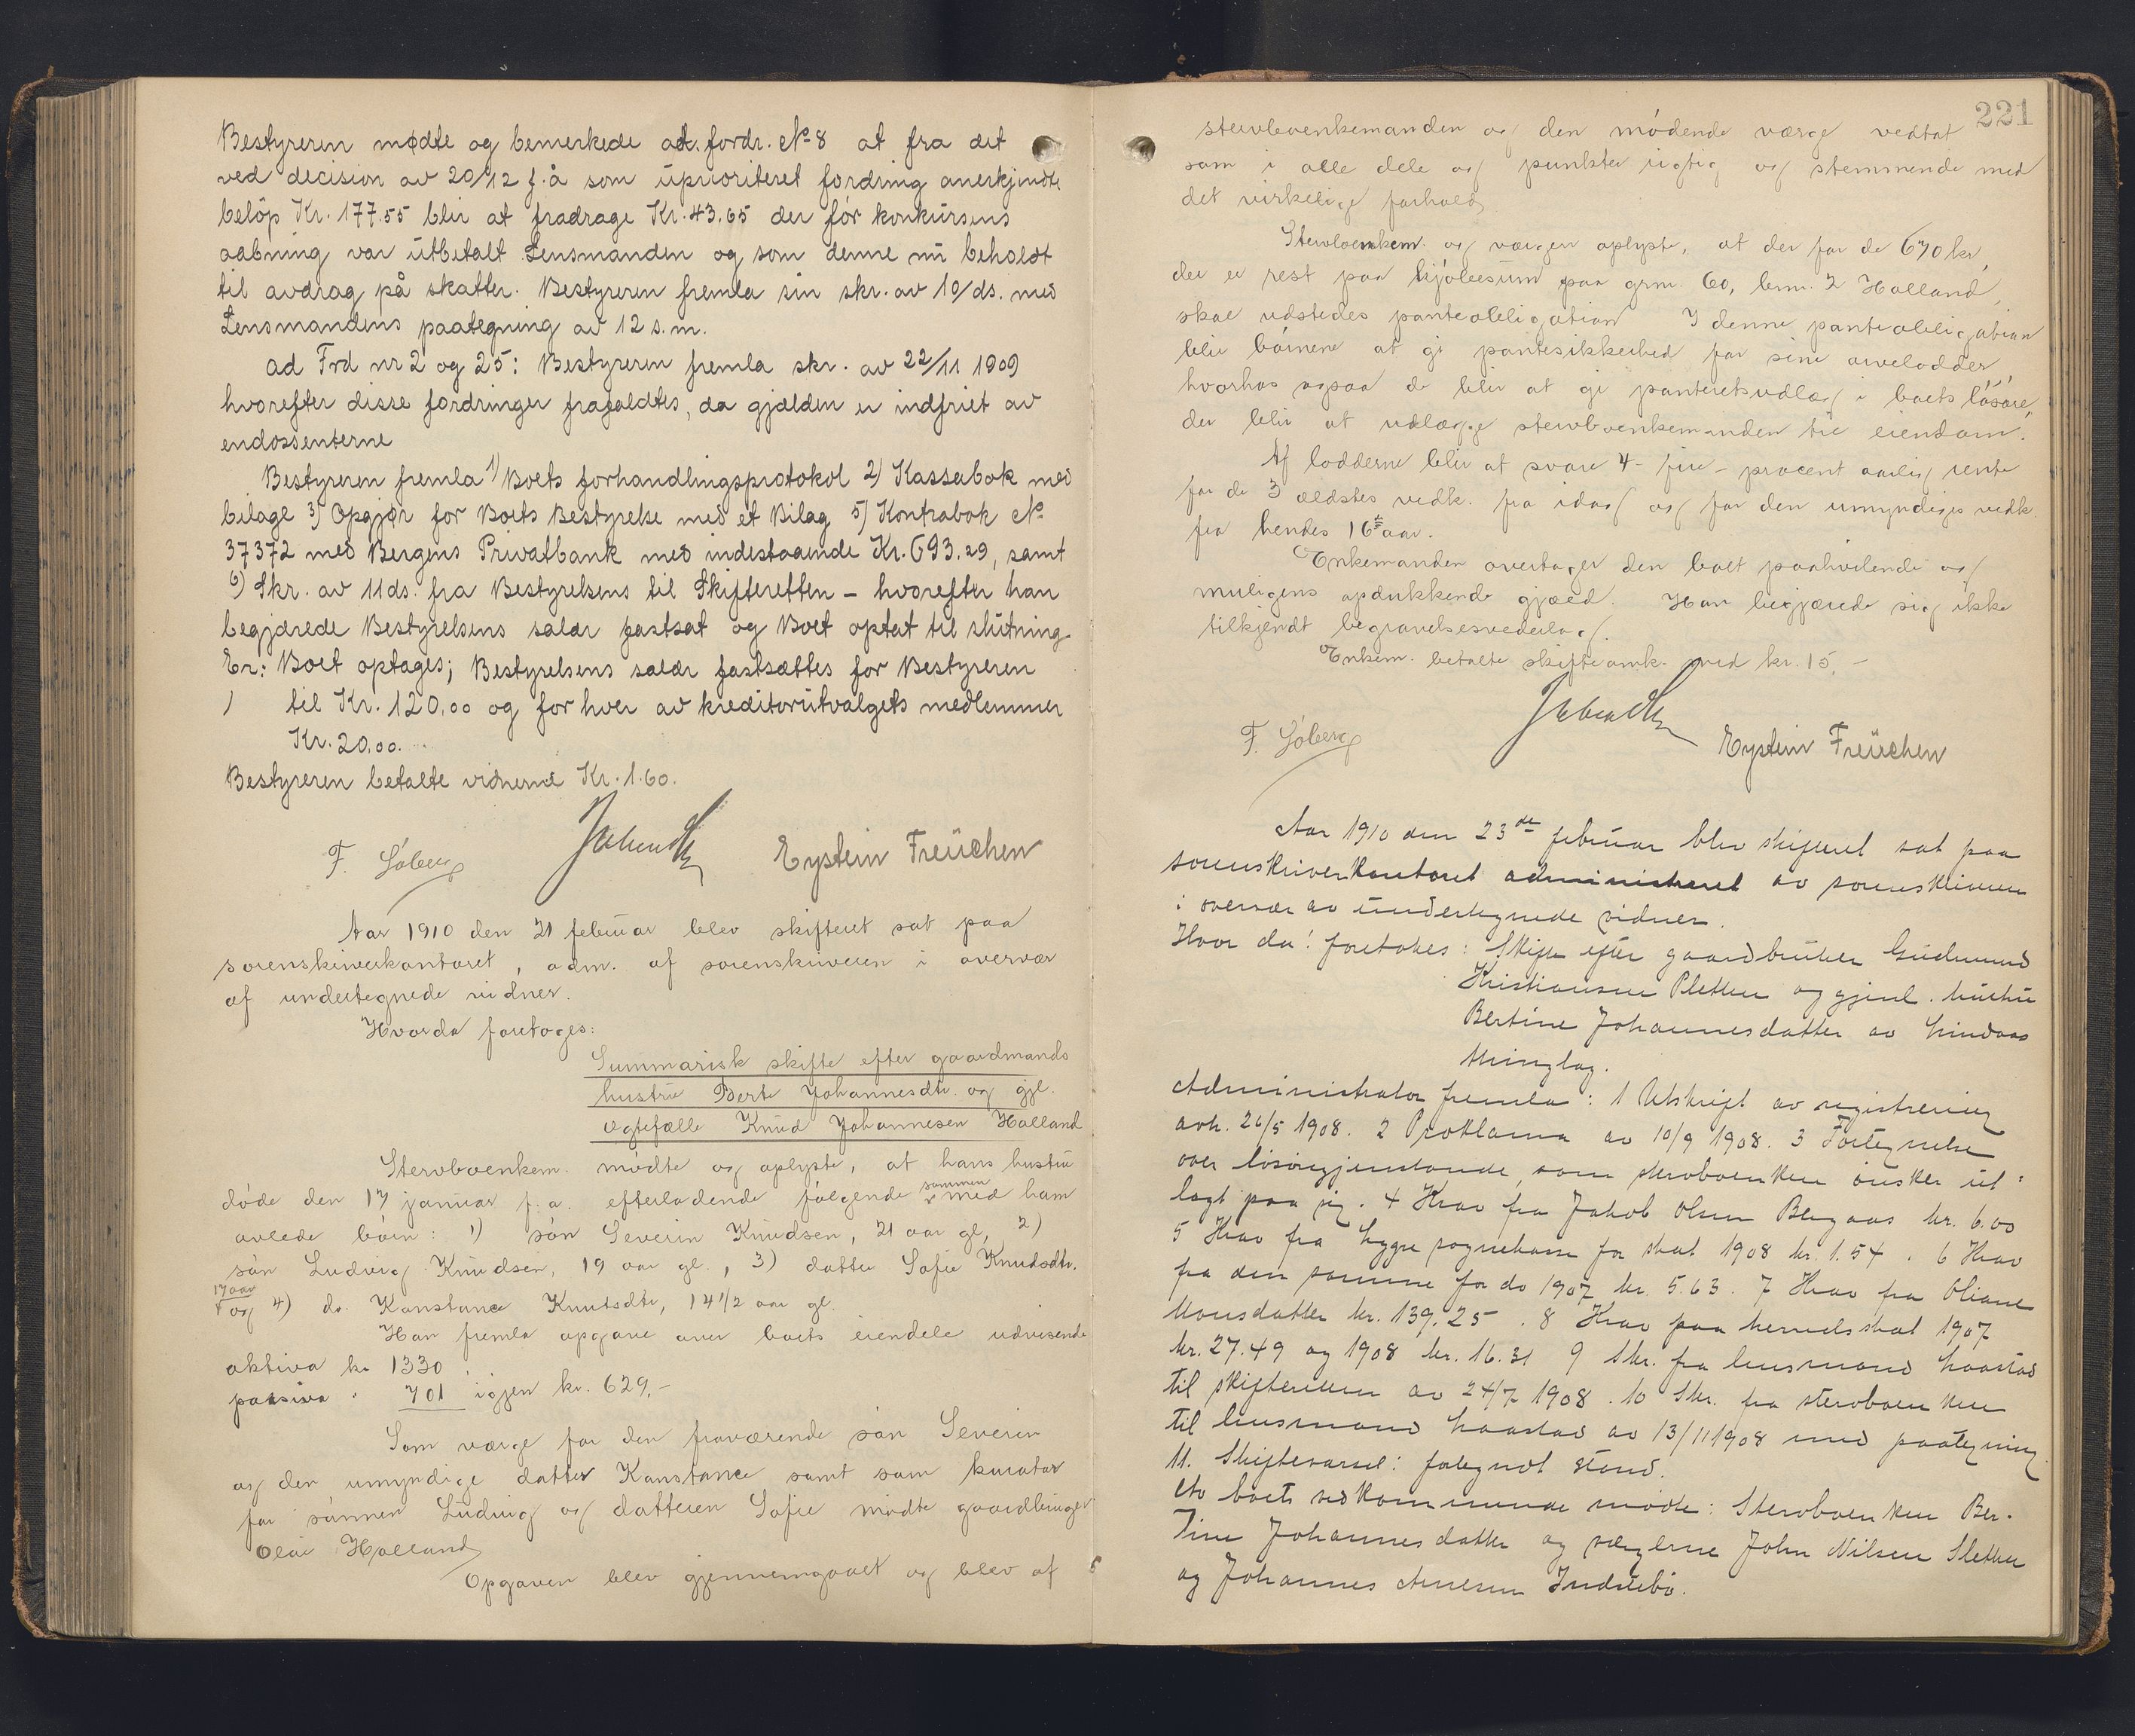 Bestyreren mødte og bemerkede ad. fordr. No 8 at fra det
ved decision av 20/12 f.å som uprioriteret fordring anerkjendte
beløp Kr. 177.55 blir at fradrage Kr. 43.65 der før konkursens
aabning var utbetalt Lensmanden og som denne nu beholdt
til avdrag på skatter. Bestyreren fremla sin skr. av 10/ds. med
Lensmandens paategning av 12 s.m.
ad Frd nr 2 og 25: Bestyreren fremla skr. av 22/11 1909
hvorefter disse fordringer frafaldtes, da gjælden er indfriet av
endossenterne
Bestyreren fremla 1) Boets forhandlingsprotokol 2) Kassabok med
bilage 3) Opgjør for Boets Bestyrelse med et Bilag 5) Kontrabok No
37372 med Bergens Privatbank med indestaaende Kr. 693.29, samt
6) Skr. av 11 ds. fra Bestyrelsens til Skifteretten – hvorefter han
begjærede Bestyrelsens salær fastsat og Boet optat til slutning
Er: Boet optages; Bestyrelsens salær fastsættes for Bestyreren
til Kr. 120,00 og for hver av kreditorutvalgets medlemmer
Kr. 20,00.
Bestyreren betalte vidnerne Kr. 1.60.
F. Søberg Eystein Freuchen
Aar 1910 den 21 februar blev skifteret sat paa
sorenskriverkontoret, adm. af sorenskriveren i overvær
af undertegnede vidner.
Hvorda foretoges:
Summarisk skifte efter gaardmands
hustru Berte Johannesdtr. og gjl.
egtefælle Knud Johannesen Halland
Stervboenkem. mødte og oplyste, at hans hustru
døde den 17 januar f. a. efterladende følgende sammen med ham
avlede børn: 1) søn Severin Knudsen, 21 aar gl, 2)
søn Ludvig Knudsen, 19 aar gl., 3) datter Sofie Knutsdtr.
17 aar
og 4) do. Konstance Knutsdtr, 14 1/2 aar gl.
Han fremla opgave over boets eiendele udvisende
aktiva kr 1330
passiva " 701 igjen kr. 629,-
Som værge for den fraværende søn Severin
og den umyndige datter Konstance samt som kurator
for sønnen Ludvig og datteren Sofie mødte gaardbruger
Olai Halland
Opgaven blev gjennemgaaet og blev af
221
stervboenkemanden og den mødende værge vedtat
som i alle dele og punkter rigtig og stemmende med
det virkelige forhold
Stervboenkem. og værgen oplyste, at der for de 670 kr,
der er rest paa kjøbesum paa grn. 60, brn. 2 Halland,
skal udstedes panteobligation I denne panteobligation
blir børnene at gi pantesikkerhed for sine arvelodder,
hvorhos ogsaa de blir at gi panteretsudlæg i boets løsøre,
der blir at udlægge stervboenkemanden til eiendom.
Af lodderne blir at svare 4 – fire – procent aarlig rente
for de 3 ældstes vedk. fra idag og for den umyndiges vedk.
fra hendes 16de aar.
Enkemanden overtager den boet paahvilende og
muligens opdukkende gjæld. Han begjærede sig ikke
tilkjendt begravelsesvederlag.
Enkem. betalte skifteomk. med kr. 15,-
F. Søberg Eystein Freuchen
Aar 1910 den 23de februar blev skifteret sat paa
sorenskriverkontoret administreret av sorenskriveren
i overvær av undertegnede vidner.
Hvor da: foretokes: Skifte efter gaardbruker Gudmund
Kristiansen Sletten og gjenl. hustru
Bertine Johannesdatter av Lindaas
thinglag.
Administrator fremla: 1 Utskrift av registrering
avh. 26/5 1908. 2 Proklama av 10/9 1908. 3 Fortegnelse
over løsøregjenstande, som stervboenken ønsker ut-
lagt paa sig. 4 Krav fra Jakob Olsen Bergaas kr. 6.00
5 Krav fra Lygre sognekom for skat 1908 kr. 1.54. 6 Krav
fra den samme for do 1907 kr. 5.63. 7 Krav fra Oliane
Monsdatter kr. 139.25. 8 Krav paa herredsskat 1907
kr. 27.49 og 1908 kr. 16.31 9 Skr. fra lensmand Haastad
til skifteretten av 24/7 1908. 10 Skr. fra stervboenken
til lensmand Haastad av 13/11 1908 med paategning
11. Skiftevarsel: forkyndt
Av boets vedkommende møtte: Stervboenken Ber-
tine Johannesdatter og værgerne John Nilsen Sletten
og Johannes Arnesen Indrebø.